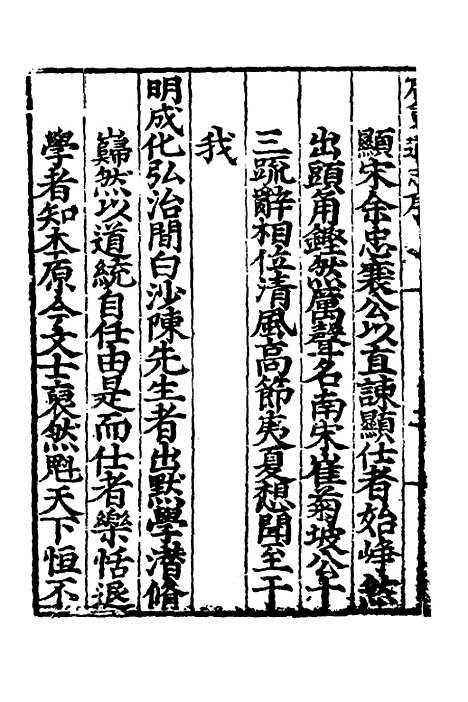 顯宋余忠襄公以直諫顯仕者始崢然
出頭角鏗然厲聲名南宋崔菊坡公十
三疏辭相位清風高節夷夏想聞至于
我
明成化弘治間白沙陳先生者出默學潛脩
巋然以道統自任由是而仕者樂恬退
學者知本原今文士裒然魁天下恒不